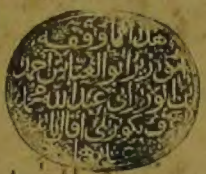 هذا ما وقفه
الوزير ابو العباس احمد
بن الوزير ابى عبد الله محمد
عرف بكوبرلى اقال الله
عثارهما